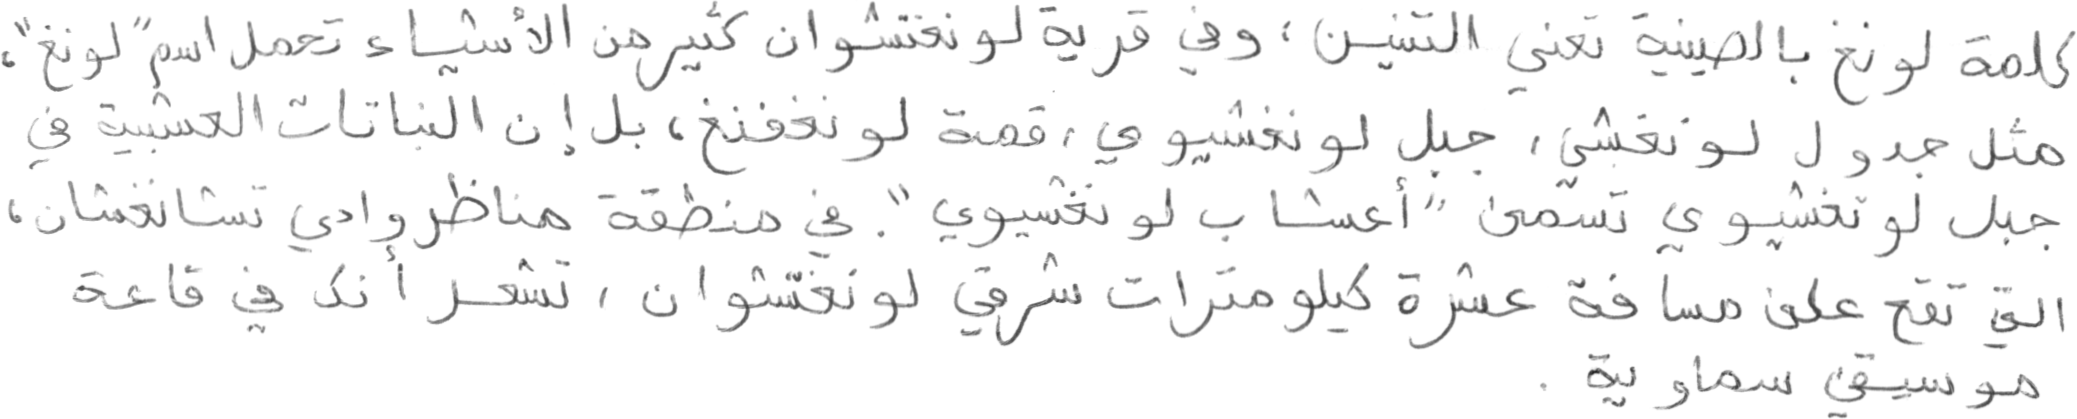 كلمة لونغ بالصينية تعني التنين، وفي قرية لونغتشوان كثير من الأشياء تحمل اسم "لونغ"،
مثل جدول لونغشي، جبل لونغشيوي، قمة لونغفنغ، بل إن النباتات العشبية في
جبل لونغشيوي تسمى "أعشاب لونغشيوي". في منطقة مناظر وادي تشانغشان،
التي تقع على مسافة عشرة كيلومترات شرقي لونغتشوان، تشعر أنك في قاعة
موسيقى سماوية.